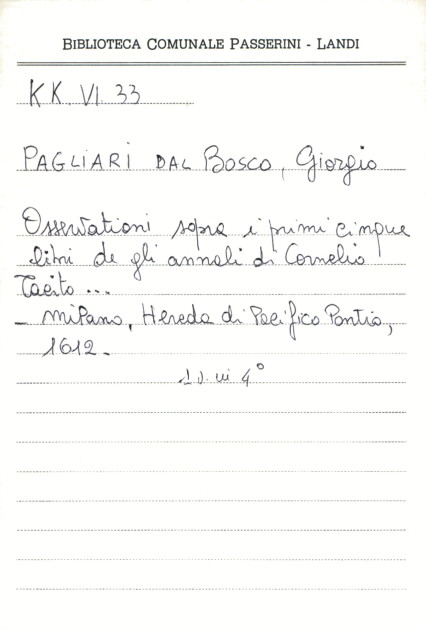 BIBLIOTECA COMUNALE PASSERINI - LANDI
KK. VI. 33
PAGLIARI DAL BOSCO, Giorgio
Osservationi sopra i primi cinque
libri de gli annali di Cornelio
Tacito ...
- Milano, Herede di Pacifico Pontio,
1612.
1 v. in 4°